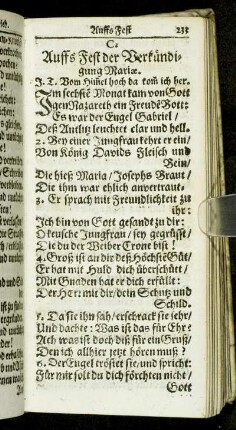 Auffs Fest 235
C.
Auffs Fest der Verkündi-
gung Mariæ.
J. T. Vom Himel hoch da kom ich her.
Im sechstē Monat kam von Gott
Gen Nazareth ein Freudē Bott:
Es war der Engel Gabriel /
Deß Antlitz leuchtet clar und hell.
2. Bey einer Jungfrau kehrt er ein /
Von König Davids Fleisch und
Bein /
Die hieß Maria / Josephs Braut /
Die ihm war ehlich anvertraut.
3. Er sprach mit Freundlichkeit zu
ihr:
Ich bin von Gott gesandt zu dir:
O keusche Jungfrau / sey gegrüsst /
Die du der Weiber Crone bist!
4. Groß ist an dir deß Höchstē Güt /
Er hat mit Huld dich überschütt /
Mit Gnaden hat er dich erfüllt:
Der Herr mit dir / dein Schutz und
Schild.
5. Da sie ihn sah / erschrack sie sehr /
Und dachte: Was ist das für Ehr?
Ach was ist doch diß für ein Gruß /
Den ich allhier jetzt hören muß?
6. Der Engel tröstet sie / und spricht:
Für mir solt du dich förchten nicht /
Gott